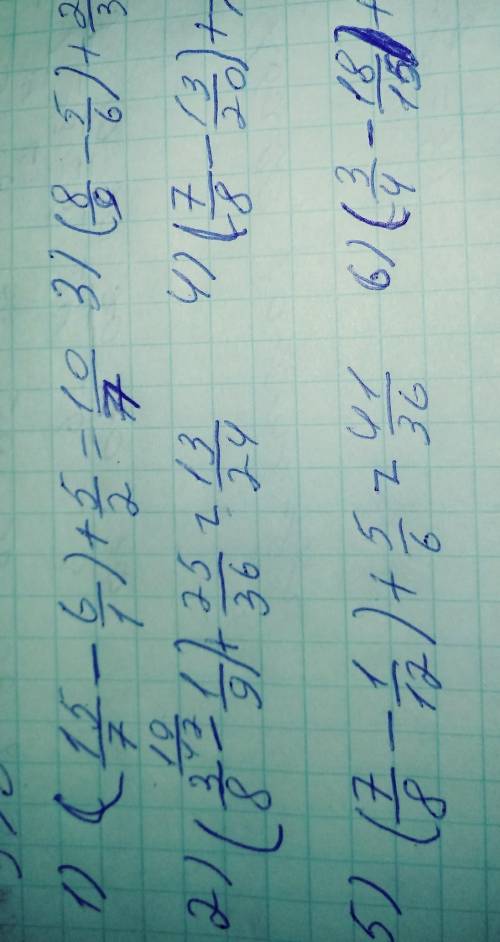 1) (15/7 - 6/1) + 5/2 = 10/7 3) (8/9 - 5/6) + 2/3
2) (3/8 19/42 - 1/9) + 25/36 = 13/24 4) (7/8 - 13/20) +
5) (7/8 - 1/12) + 5/6 = 41/36 6) (3/4 - 18/15) +